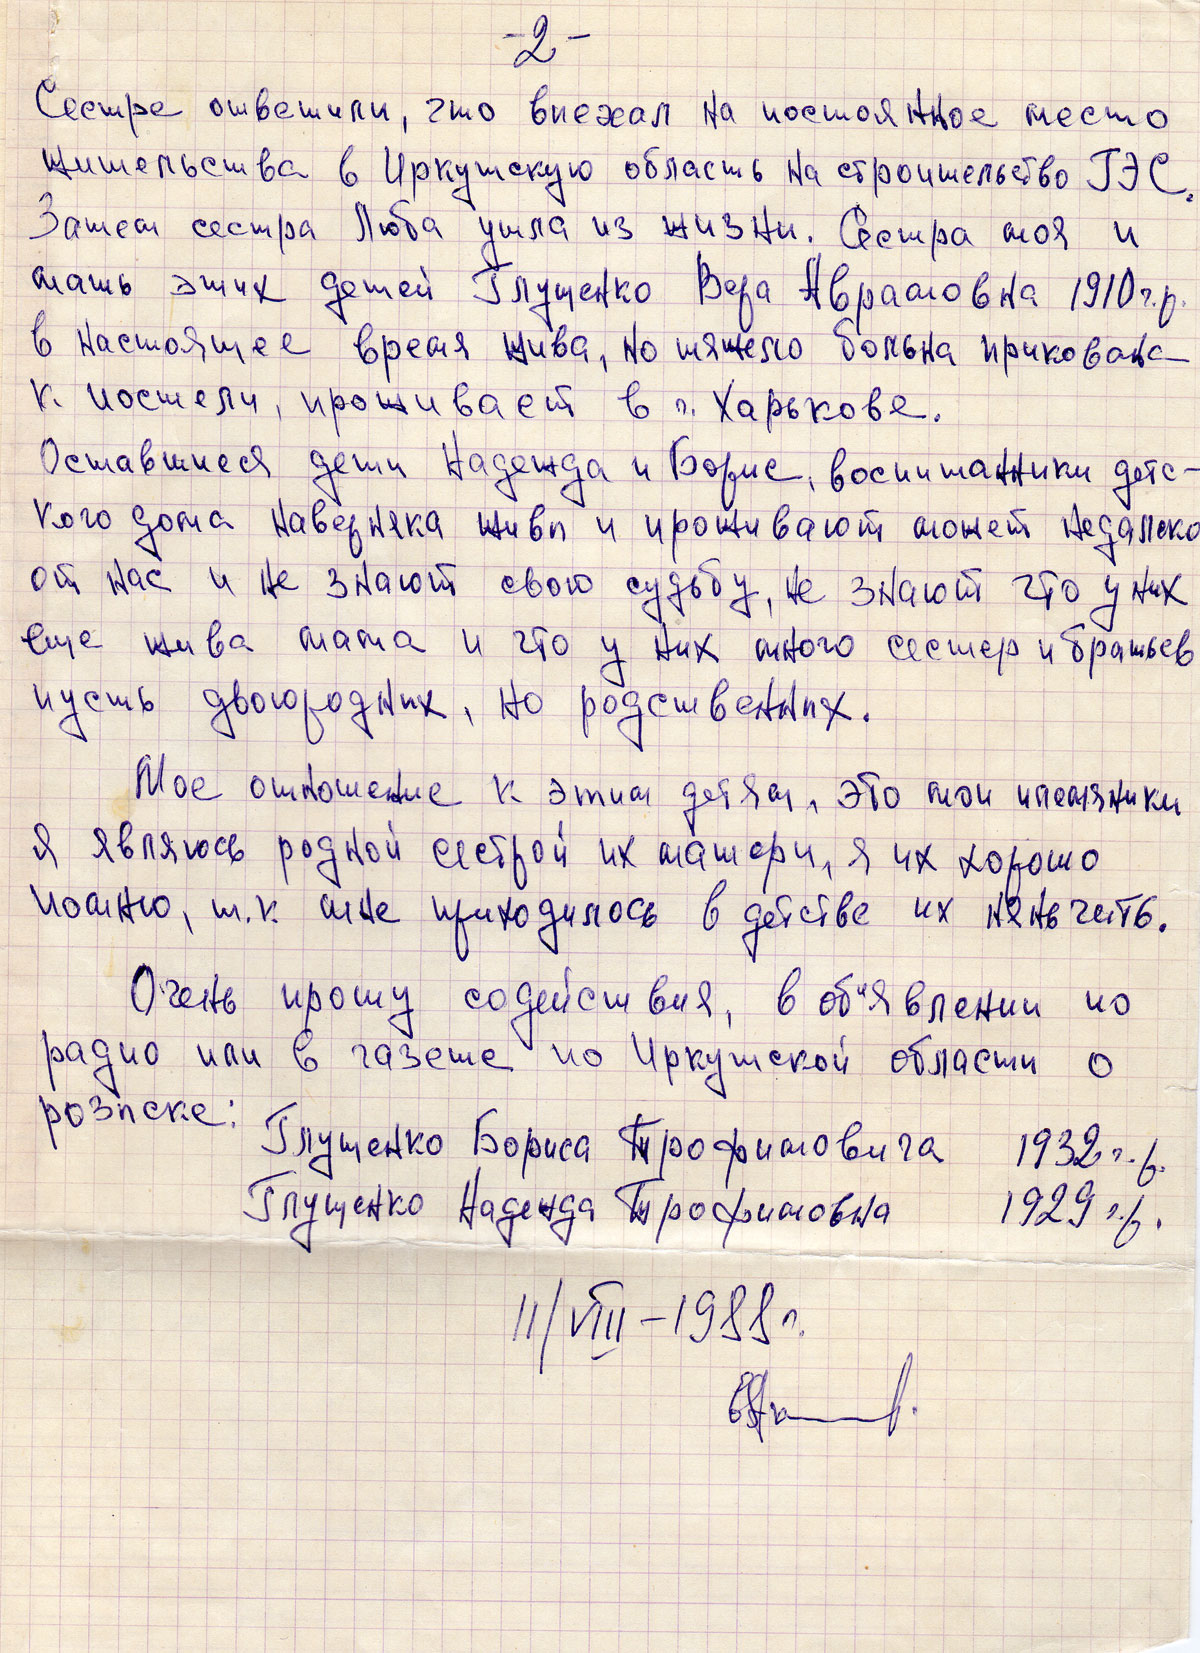 -2-
Сестре ответили, что виехал на постоянное место
жительства в Иркутскую область на строительство ГЭС.
Затем сестра Люба ушла из жизни. Сестра моя и
мать этих детей Глущенко Вера Аврамовна 1910 г.р.
в настоящее время жива, но тяжело больна прикована
к постели, проживает в г. Харькове.
Оставшиеся дети Надежда и Борис, воспитанники детс-
кого дома наверняка живи и проживают может недалеко
от нас и не знают свою судьбу, не знают что у них
еще жива мама и что у них много сестер и братьев
пусть двоюродних, но родственних.
Мое отношение к этим детям, это мои племяники
я являюсь родной сестрой их матери, я их хорошо
помню, т.к. мне приходилось в детстве их няньчить.
Очень прошу содействия, в об"явлении по
радио или в газете по Иркутской области о
розиске:
Глущенко Бориса Трофимовича 1932 г.р.
Глущенко Надежда Трофимовна 1929 г.р.
11/VIII - 1988 г.